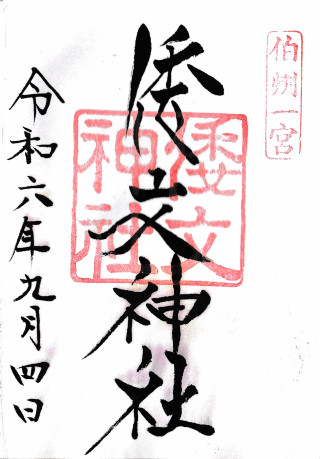 伯州一宮
倭文神社
倭文神社
令和六年九月四日